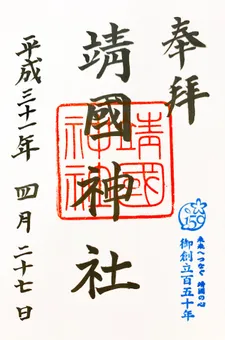 奉拝
靖國神社
平成三十一年 四月 二十七日
靖國神社
150
未来へつなぐ 靖國の心
御創立百五十年